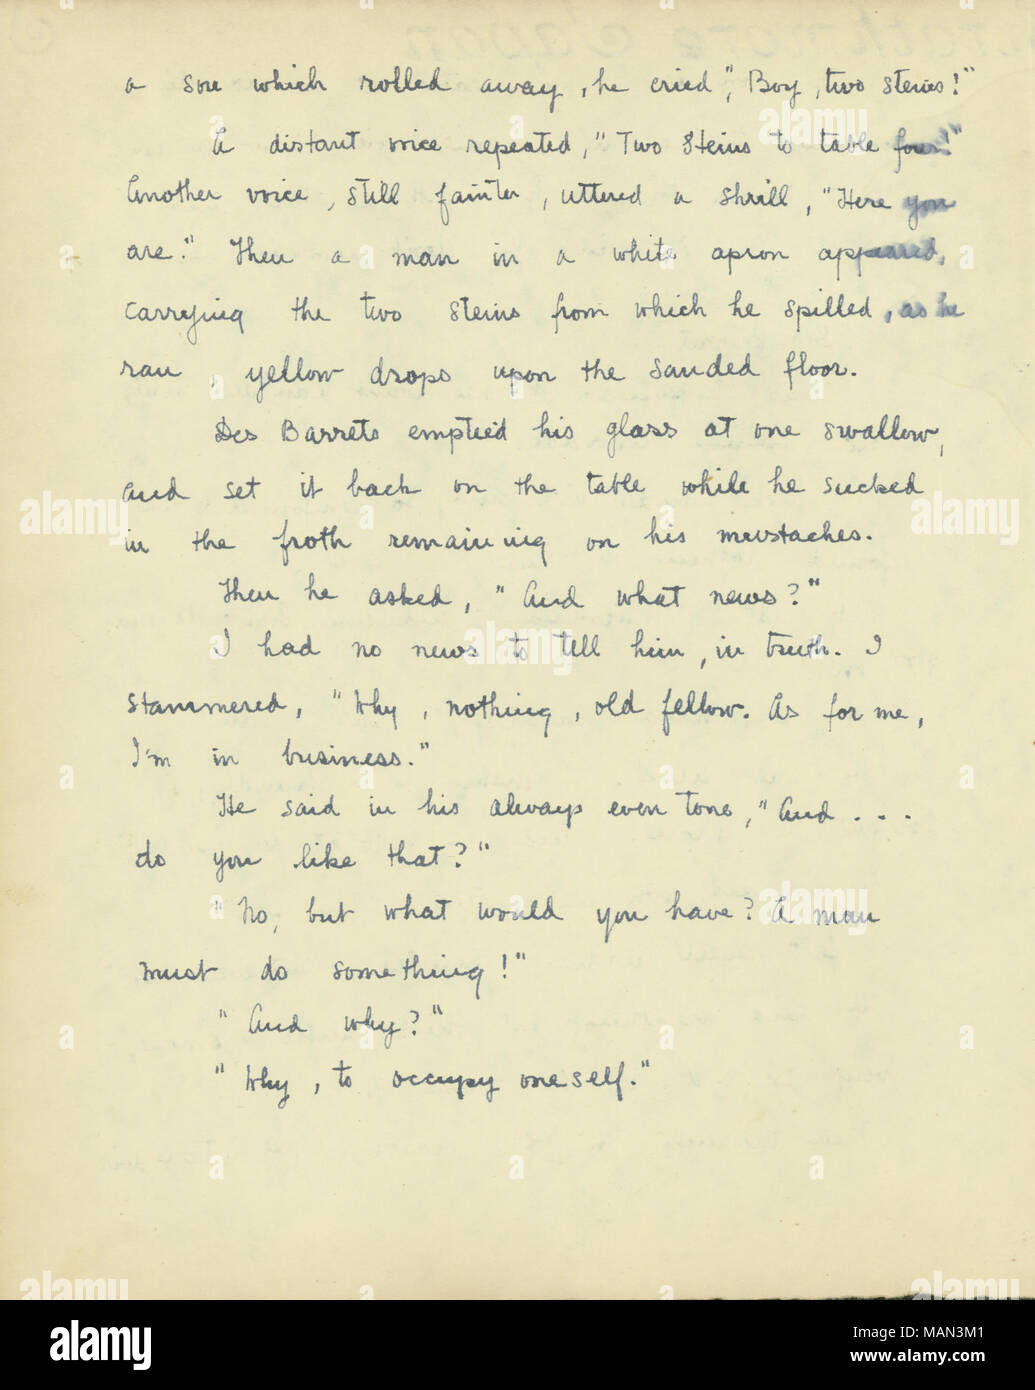 a sou which rolled away, he cried", Boy, two steins!"
A distant voice repeated, "Two steins to table four!"
Another voice, still fainter, uttered a shrill, "Here you
are." Then a man in a white apron appeared,
carrying the two steins from which he spilled, as he
ran, yellow drops upon the sanded floor.
Des Barrets emptied his glass at one swallow,
and set it back on the table while he sucked
in the froth remaining on his mustaches.
Then he asked, "And what news?"
I had no news to tell him, in truth. I
stammered, "Why, nothing, old fellow. As for me,
I'm in business."
He said in his always even tone, "And . . .
do you like that?"
"No, but what would you have? A man
must do something!"
"And why?"
"Why, to occupy oneself."
alamy
Image ID: MAN3M1
www.alamy.com